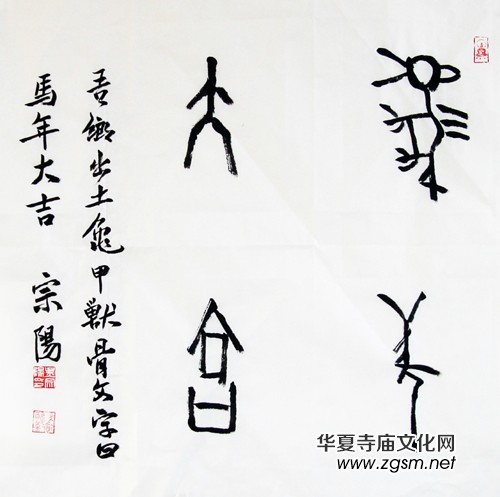 馬年
大吉
吾鄉出土龜甲獸骨文字曰
馬年大吉 宗陽
华夏寺庙文化网
www.zgsm.net